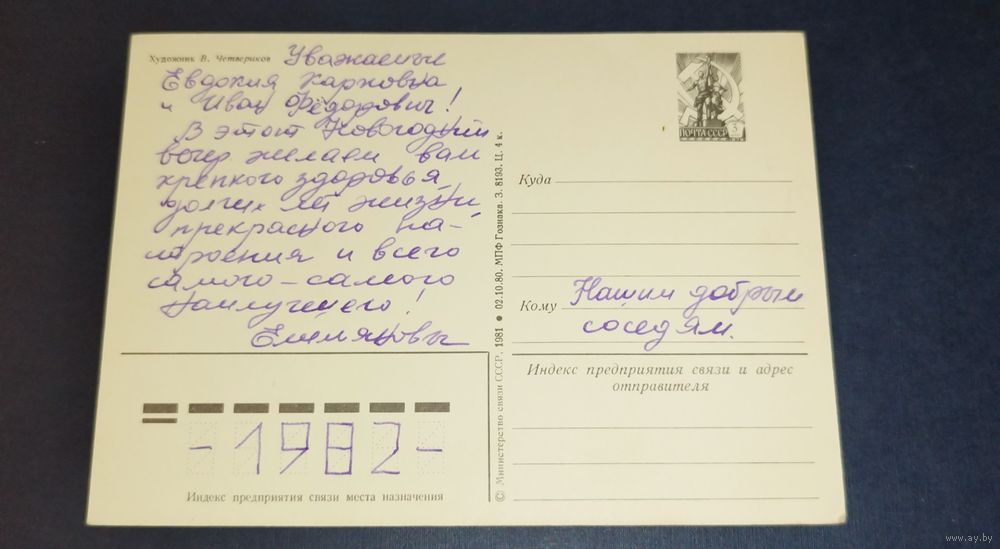 Художник В. Четвериков
Уважаемые
Евдокия Карповна
и Иван Фёдорович!
В этот Новогодний
вечер желаем вам
крепкого здоровья,
долгих лет жизни,
прекрасного на-
строения и всего
самого-самого
наилучшего!
Емельяновы
-1982-
Индекс предприятия связи места назначения
© Министерство связи СССР, 1981 ● 02.10.80. МПФ Гознака. З. 8193. Ц. 4 к.
ПОЧТА СССР 3
Куда
Кому Нашим добрым
соседям.
Индекс предприятия связи и адрес
отправителя
www.ay.by